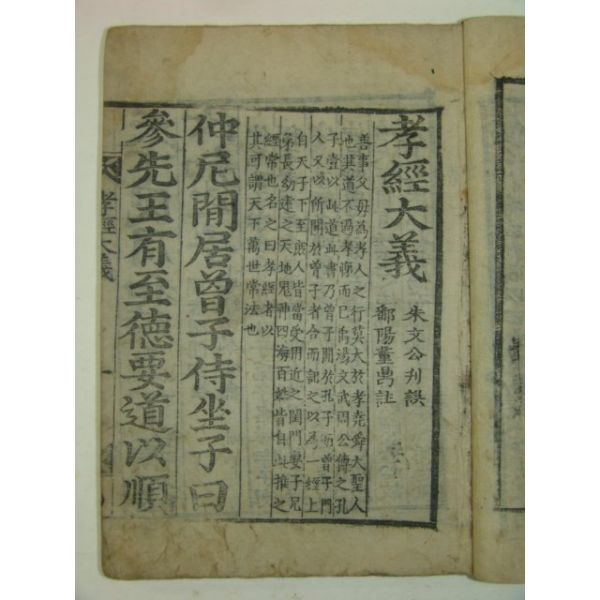 孝經大義
朱文公刊誤
鄱陽董鼎註
善事父母為孝人之行莫大於孝堯舜大聖人
也其道不過孝悌而已禹湯文武周公傳之孔
子壹以此道此書乃曾子聞於孔子而曾子門
人又以所聞於曾子者合而記之以為一經上
自天子下至庶人皆當受用近之閨門妻子兄
弟長幼達之天地鬼神四海百姓皆自此推之
經常也名之曰孝經者以
其可謂天下萬世常法也
仲尼閒居曾子侍坐子曰
參先王有至德要道以順
孝經大義
一